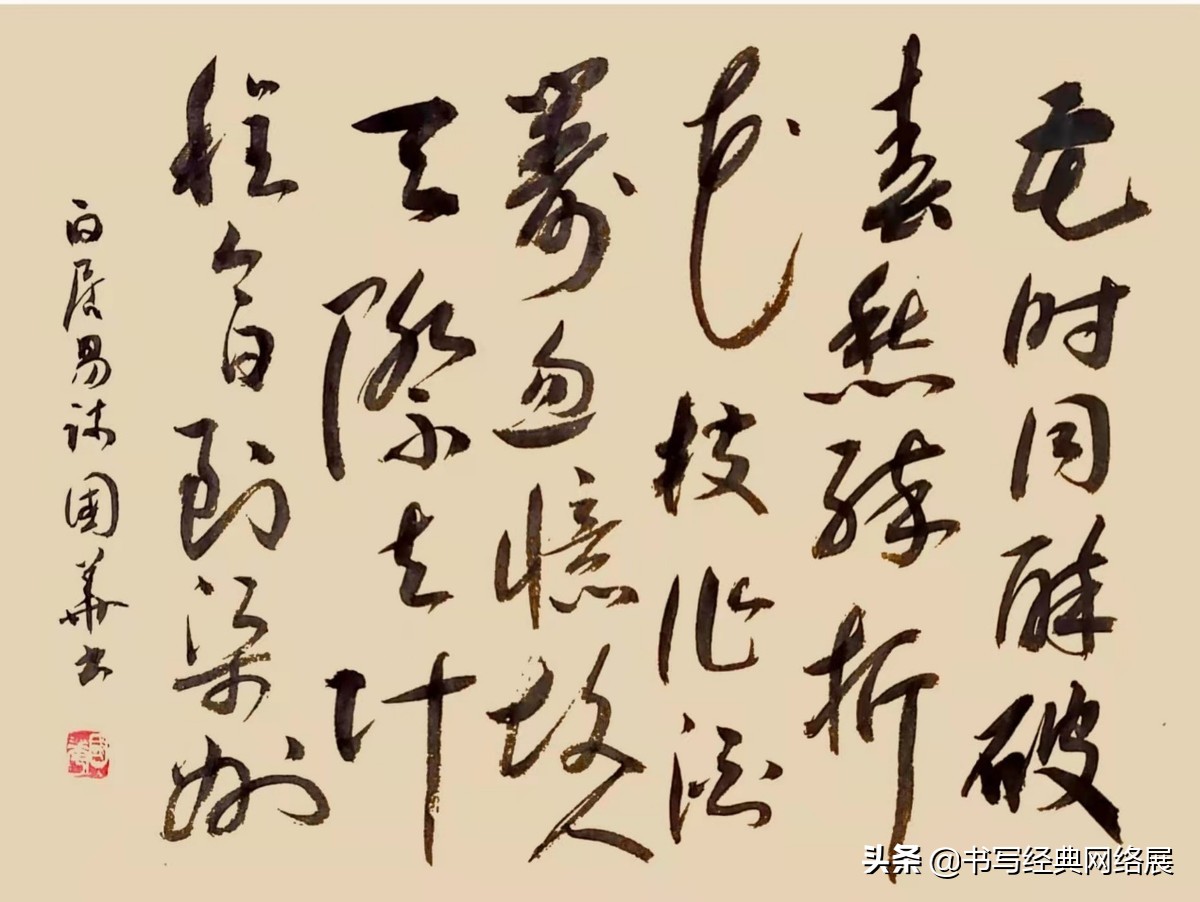 花时同醉破
春愁醉折
花枝作酒
籌忽憶故人
天際去计
程今日到梁州
白居易诗國華书
國華
头条 @书写经典网络展